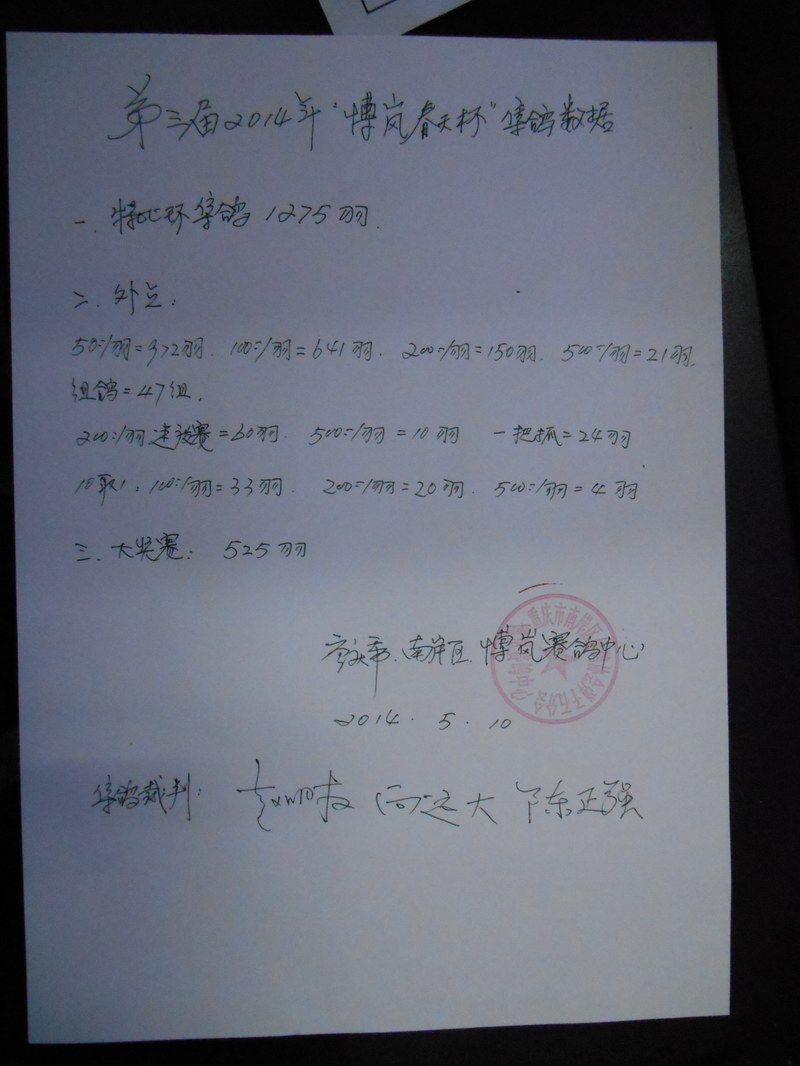 第三届2014年“博岚春天杯”集鸽数据
一. 特比环集鸽 1275羽.
二. 外点:
50元/羽=372羽. 100元/羽=641羽. 200元/羽=150羽. 500元/羽=21羽.
组鸽=47组.
200元/羽速赛=60羽. 500元/羽=10羽 一把抓=24羽
10取1: 100元/羽=33羽. 200元/羽=20羽. 500元/羽=4羽
三. 大奖赛: 525羽
重庆市.南岸区.博岚赛鸽中心
重庆市南岸区
2014.5.10
集鸽裁判: 陈正强